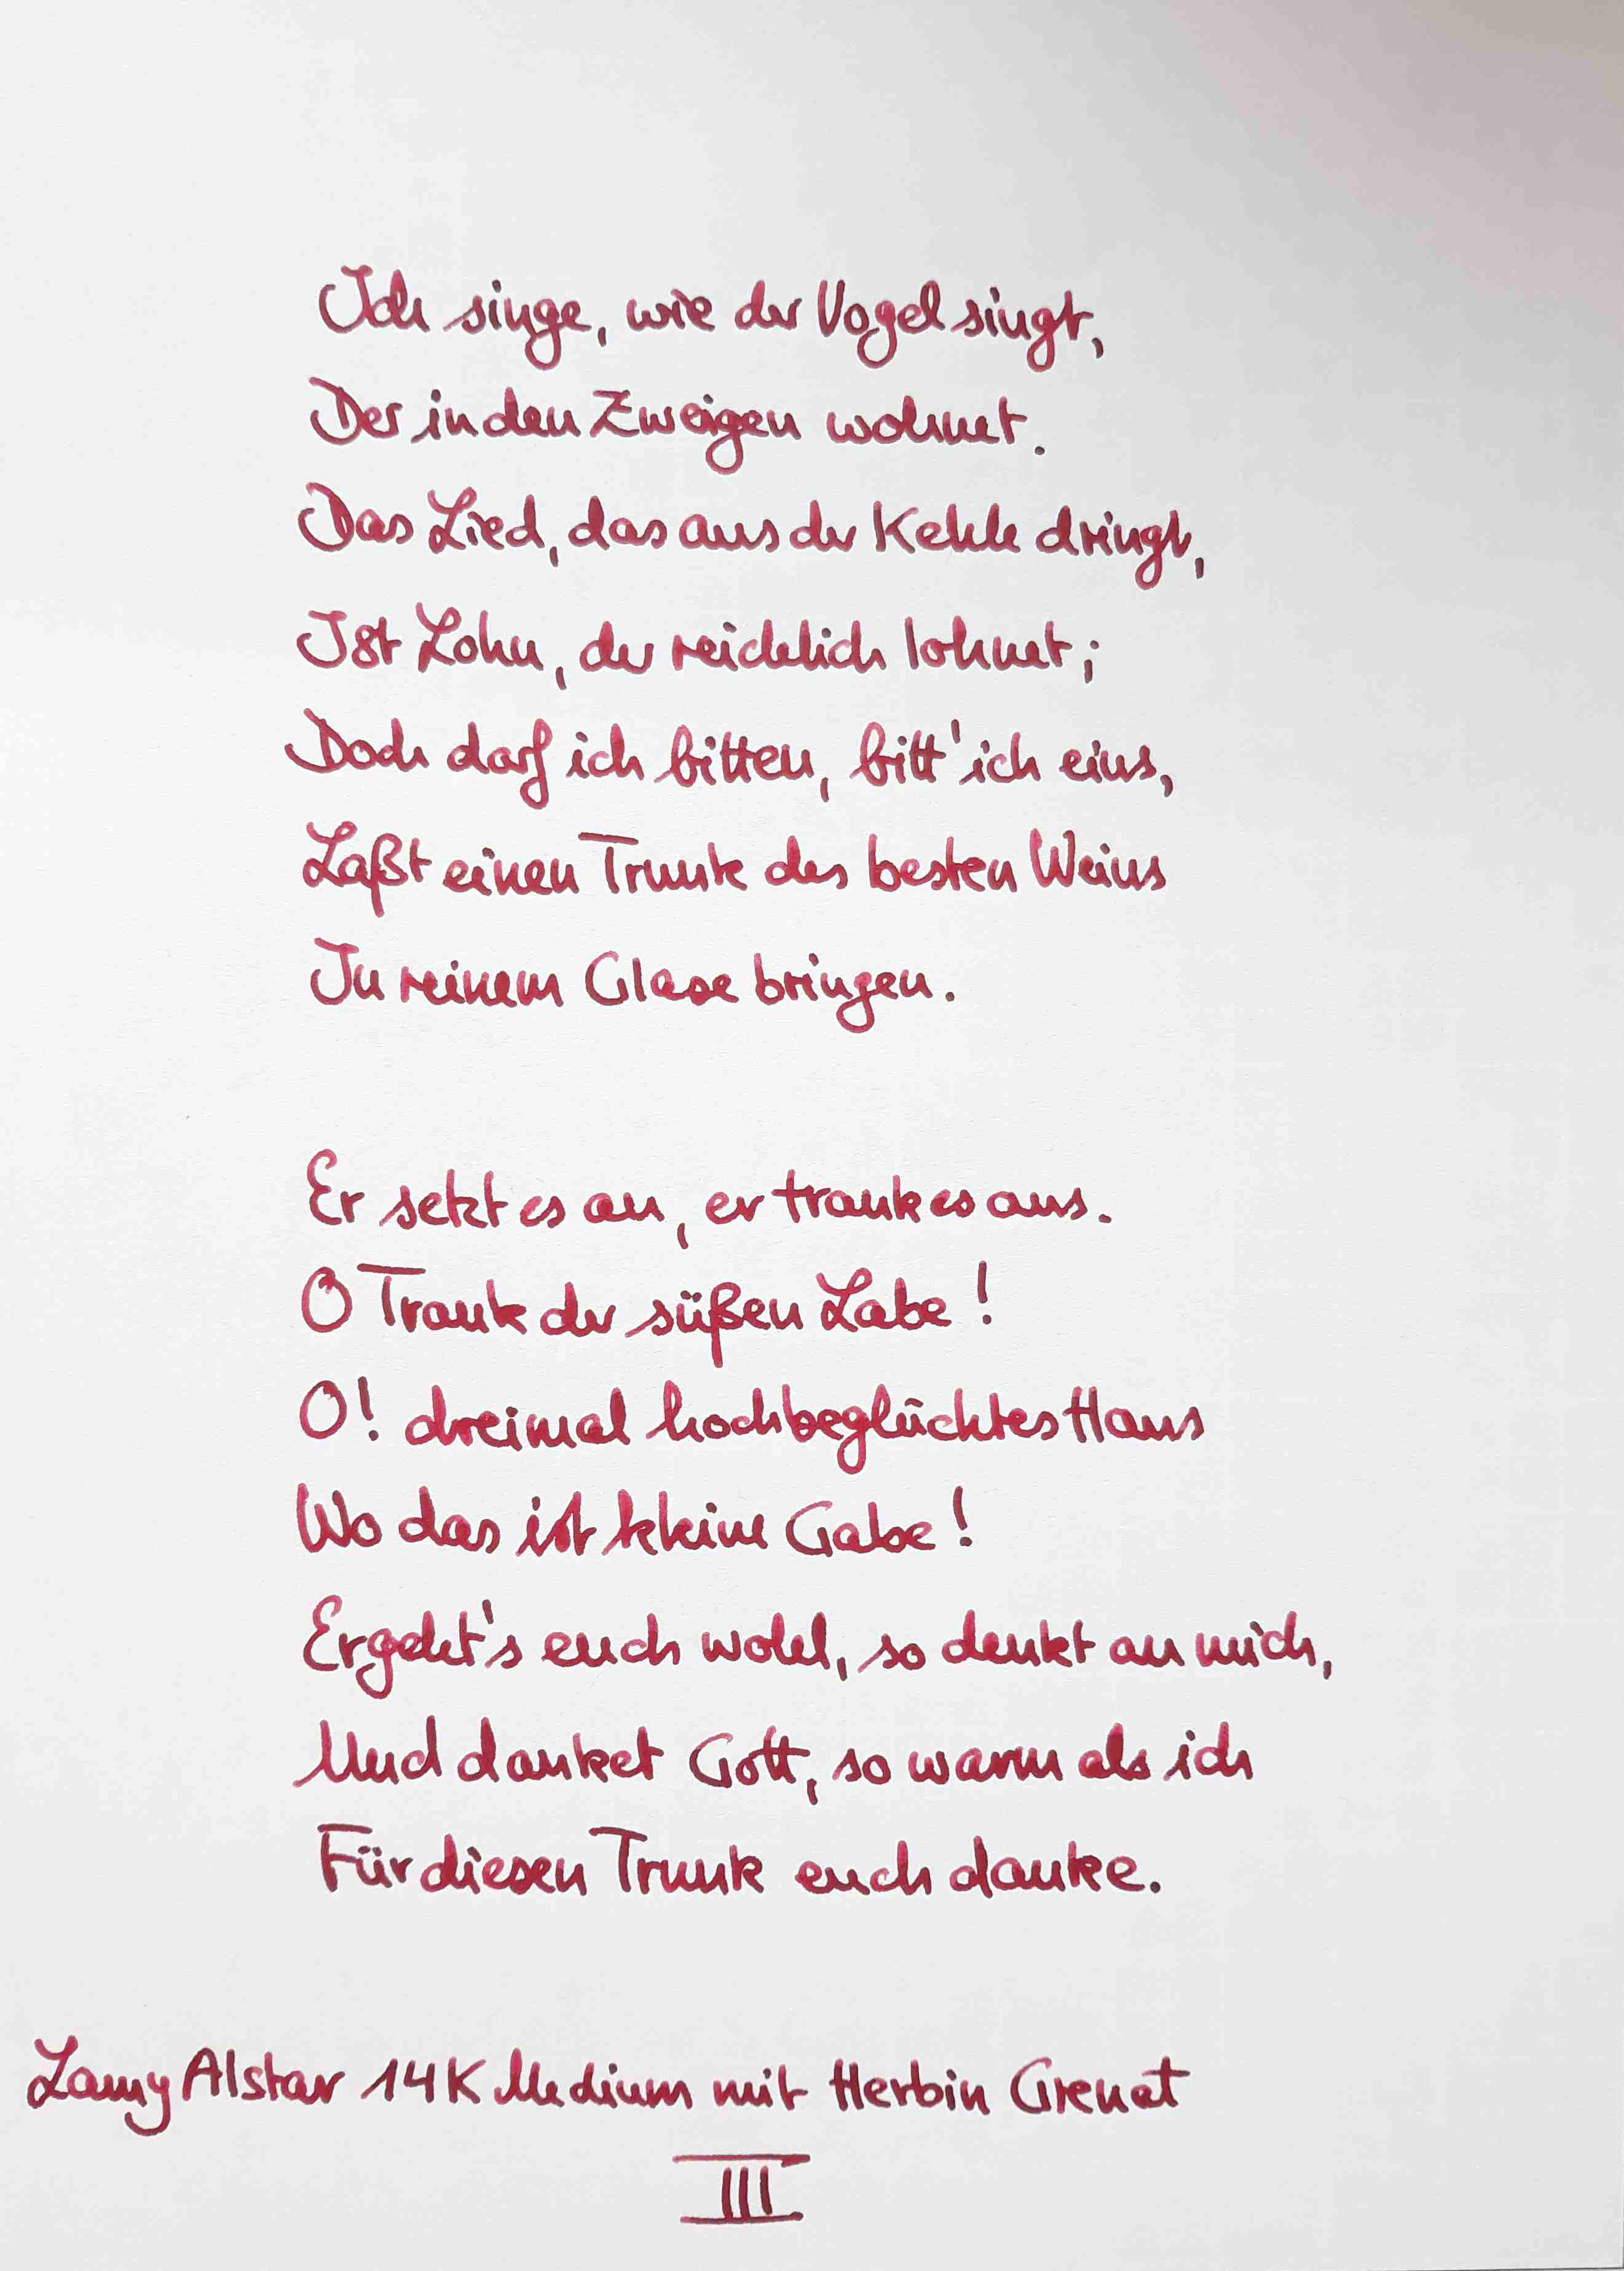 Ich singe, wie der Vogel singt,
Der in den Zweigen wohnet.
Das Lied, das aus der Kehle dringt,
Ist Lohn, der reichlich lohnet;
Doch darf ich bitten, bitt' ich eins,
Laßt einen Trunk des besten Weins
In reinem Glase bringen.
Er setzt es an, er trank es aus.
O Trank der süßen Labe!
O! dreimal hochbeglücktes Haus
Wo das ist kleine Gabe!
Ergeht's euch wohl, so denkt an mich,
Und danket Gott, so warm als ich
Für diesen Trunk euch danke.
Lamy Alstar 14K Medium mit Herbin Grenat
III